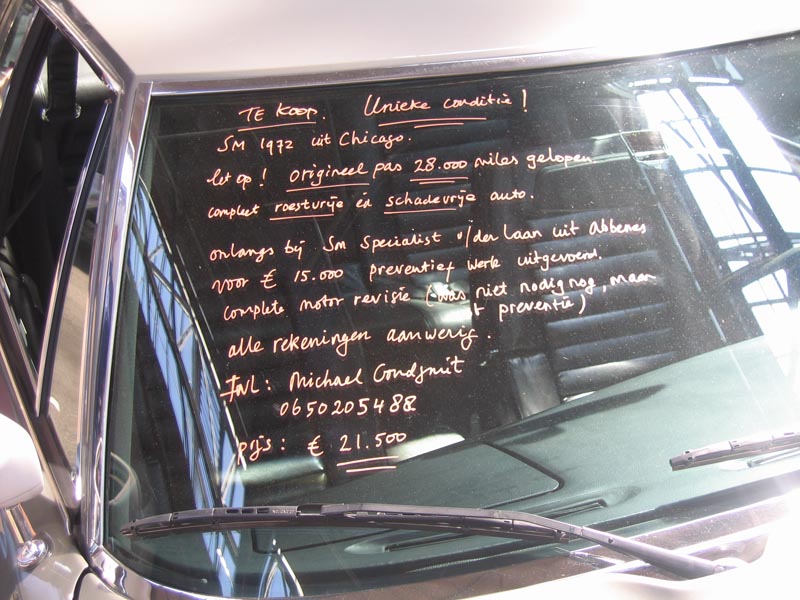 TE KOOP. Unieke conditie!
SM 1972 uit Chicago.
let op! origineel pas 28.000 miles gelopen
compleet roestvrije en schadevrije auto.
onlangs bij SM Specialist v/der Laan uit Abbenes
voor € 15.000 preventief werk uitgevoerd.
complete motor revisie (was niet nodig nog, maar
preventie)
alle rekeningen aanwezig.
Inl: Michael Goudsmit
0650205488
prijs: € 21.500